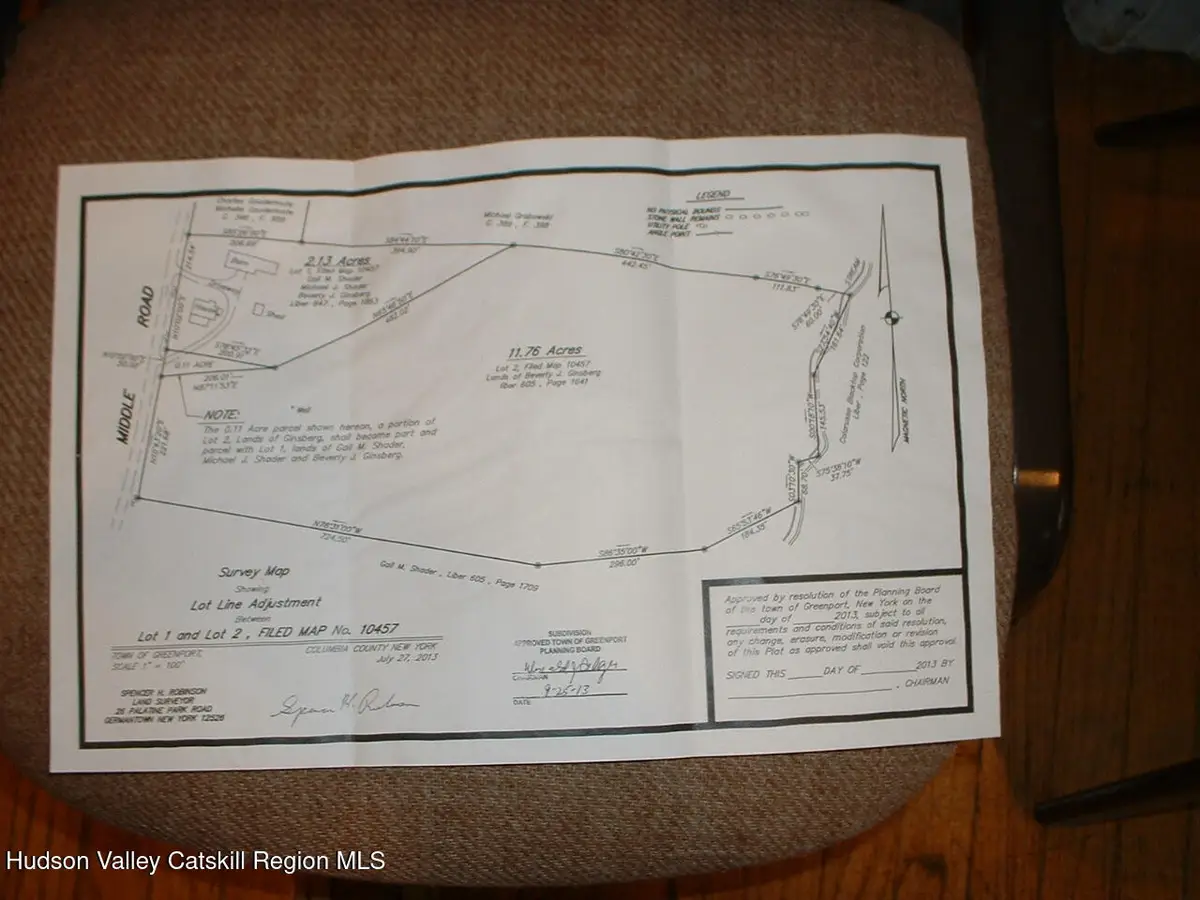 LEGEND
NO PHYSICAL BOUNDS
STONE WALL REMAINS
UTILITY POLE
ANGLE POINT
Michael Grabowski
C. 388, F. 388
2.13 Acres
Lot 1, Filed Map 10457
Gail M. Shader
Michael J. Shader
Beverly J. Ginsberg
Liber 847, Page 1863
Barn
Shed
442.45'
111.83'
STREAM
MIDDLE ROAD
11.76 Acres
Lot 2, Filed Map 10457
Lands of Beverly J. Ginsberg
liber 605, Page 1641
0.11 ACRE
206.01'
N87°11'53"E
Well
NOTE:
The 0.11 Acre parcel shown hereon, a portion of
Lot 2, Lands of Ginsberg, shall become part and
parcel with Lot 1, lands of Gail M. Shader,
Michael J. Shader and Beverly J. Ginsberg.
Liber , Page 122
MAGNETIC NORTH
S75°38'10"W
37.75'
S65°53'46"W
184.35'
N78°31'00"W
724.50'
S86°35'00"W
296.00'
Gail M. Shader, Liber 605, Page 1709
Survey Map
Showing
Lot Line Adjustment
Between
Lot 1 and Lot 2, FILED MAP No. 10457
TOWN OF GREENPORT, COLUMBIA COUNTY NEW YORK
SCALE 1" = 100' July 27, 2013
SPENCER H. ROBINSON
LAND SURVEYOR
26 PALATINE PARK ROAD
GERMANTOWN NEW YORK 12526
Spencer H. Robinson
SUBDIVISION
APPROVED TOWN OF GREENPORT
PLANNING BOARD
CHAIRMAN
9-25-13
DATE
Approved by resolution of the Planning Board
of the town of Greenport, New York on the
_____ day of _______ 2013, subject to all
requirements and conditions of said resolution,
any change, erasure, modification or revision
of this Plat as approved shall void this approval.
SIGNED THIS _____ DAY OF ________ 2013 BY
____________________, CHAIRMAN
Hudson Valley Catskill Region MLS